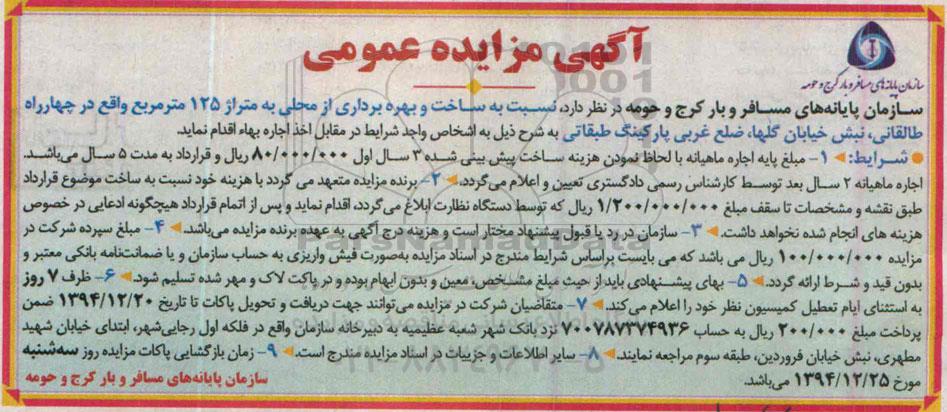 آگهی مزایده عمومی
سازمان پایانه‌های مسافر و بار کرج و حومه
سازمان پایانه‌های مسافر و بار کرج و حومه در نظر دارد، نسبت به ساخت و بهره برداری از محلی به متراژ ۱۲۵ مترمربع واقع در چهارراه
طالقانی، نبش خیابان گلها، ضلع غربی پارکینگ طبقاتی به شرح ذیل به اشخاص واجد شرایط در مقابل اخذ اجاره بهاء اقدام نماید.
شرایط: ۱- مبلغ پایه اجاره ماهیانه با لحاظ نمودن هزینه ساخت پیش بینی شده ۳ سال اول ۸۰/۰۰۰/۰۰۰ ریال و قرارداد به مدت ۵ سال می‌باشد.
اجاره ماهیانه ۲ سال بعد توسط کارشناس رسمی دادگستری تعیین و اعلام می‌گردد. ۲- برنده مزایده متعهد می گردد با هزینه خود نسبت به ساخت موضوع قرارداد
طبق نقشه و مشخصات تا سقف مبلغ ۱/۲۰۰/۰۰۰/۰۰۰ ریال که توسط دستگاه نظارت ابلاغ می‌گردد، اقدام نماید و پس از اتمام قرارداد هیچگونه ادعایی در خصوص
هزینه های انجام شده نخواهد داشت. ۳- سازمان در رد یا قبول پیشنهاد مختار است و هزینه درج آگهی به عهده برنده مزایده می‌باشد. ۴- مبلغ سپرده شرکت در
مزایده ۱۰۰/۰۰۰/۰۰۰ ریال می باشد که می بایست براساس شرایط مندرج در اسناد مزایده به‌صورت فیش واریزی به حساب سازمان و یا ضمانت‌نامه بانکی معتبر و
بدون قید و شرط ارائه گردد. ۵- بهای پیشنهادی باید از حیث مبلغ مشخص، معین و بدون ابهام بوده و در پاکت لاک و مهر شده تسلیم شود. ۶- ظرف ۷ روز
به استثنای ایام تعطیل کمیسیون نظر خود را اعلام می‌کند. ۷- متقاضیان شرکت در مزایده می‌توانند جهت دریافت و تحویل پاکات تا تاریخ ۱۳۹۴/۱۲/۲۰ ضمن
پرداخت مبلغ ۲۰۰/۰۰۰ ریال به حساب ۷۰۰۷۸۷۳۷۴۹۳۶ نزد بانک شهر شعبه عظیمیه به دبیرخانه سازمان واقع در فلکه اول رجایی‌شهر، ابتدای خیابان شهید
مطهری، نبش خیابان فروردین، طبقه سوم مراجعه نمایند. ۸- سایر اطلاعات و جزییات در اسناد مزایده مندرج است. ۹- زمان بازگشایی پاکات مزایده روز سه‌شنبه
مورخ ۱۳۹۴/۱۲/۲۵ می‌باشد.
سازمان پایانه‌های مسافر و بار کرج و حومه
ParsNamadData